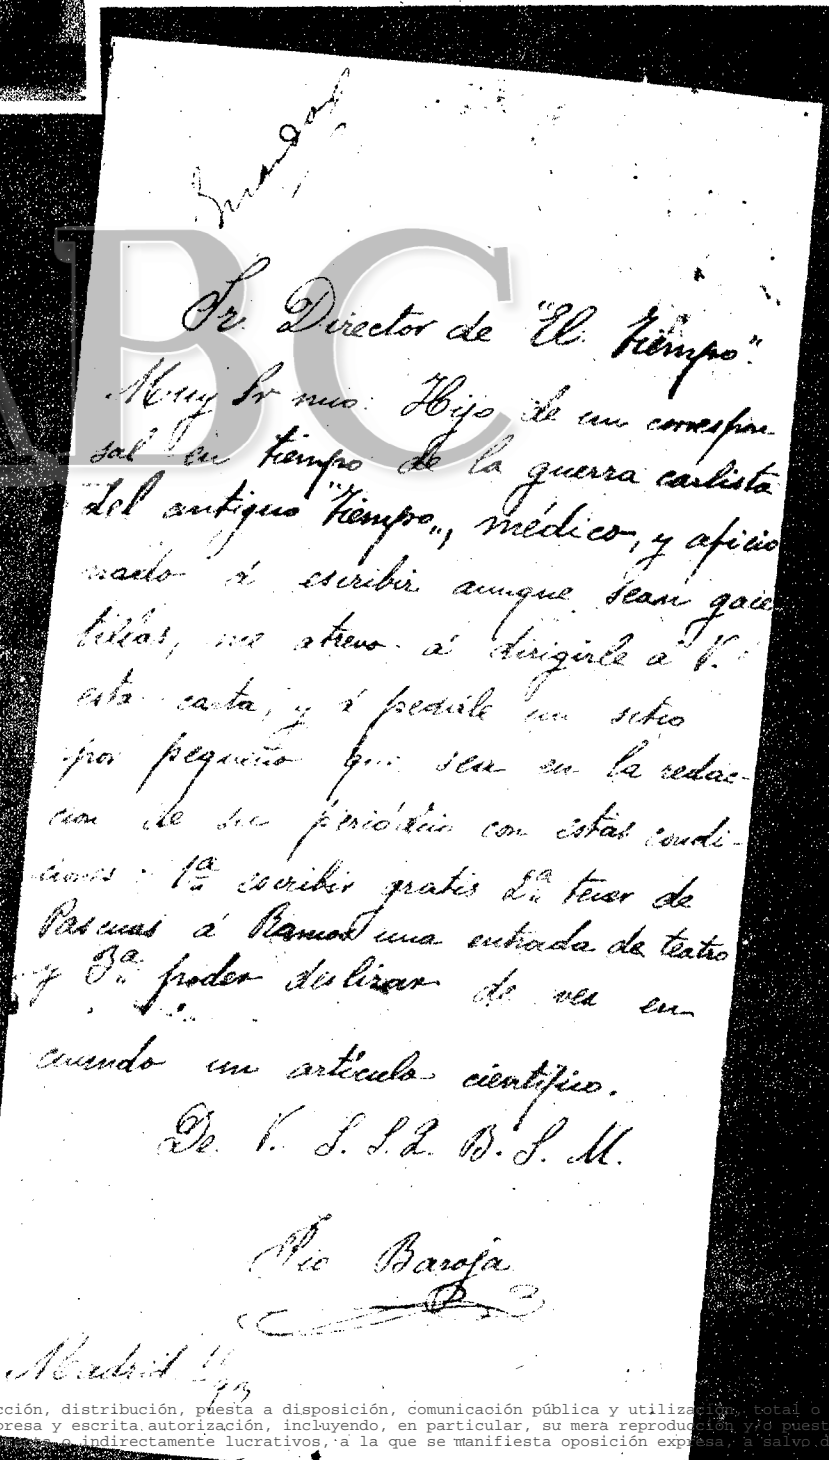 ABC
Sr. Director de "El Tiempo".
Muy Sr mio: Hijo de un correspon
sal en tiempo de la guerra carlista
del antiguo "Tiempo", médico, y aficio
nado á escribir aunque sean gace
tillas, me atrevo á dirigirle á V.
esta carta, y á pedirle un sitio
por pequeño que sea en la redac-
cion de su periódico con estas condi-
ciones: 1ª escribir gratis 2ª tener de
Pascuas á Ramos una entrada de teatro
y 3ª poder deslizar de vez en
cuando un artículo científico.
De V. S. S. Q. B. S. M.
Pio Baroja
Madrid
cción, distribución, puesta a disposición, comunicación pública y utilización, total o
presa y escrita autorización, incluyendo, en particular, su mera reproducción y/o puest
o indirectamente lucrativos, a la que se manifiesta oposición expresa, a salvo d